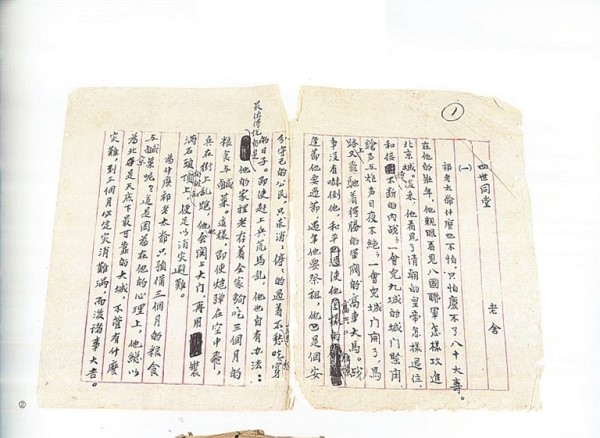 ①
四世同堂
老舍
(一)
祁老太爺什麼也不怕,只怕慶不了八十大壽。
在他的壯年,他親眼看見八國聯軍怎樣攻進
北京城。後來,他看見了清朝的皇帝怎樣退位,
和接續不斷的內戰;一會兒九城的城門緊閉,
鎗声与炮声日夜不絕;一會兒城門開了,馬
路上又飛馳着得勝的軍閥的高車大馬。戰
事沒有嚇倒他,和平使他高興。
逢節他要過節,過年他要祭祖,他是個安
分守己的公民,只求消消停停的過着不愁吃穿
的日子。即使趕上兵荒馬亂,他也自有办法:
最值得說的是他的家裡老存着全家夠吃三個月的
粮食与鹹菜。這樣,即使炮彈在空中飛,
兵在街上亂跑,他也會關上大門,再用裝
滿石頭的缸頂上,便足以消災避難。
為什麼祁老太爺只預備三個月的粮食
与鹹菜呢?這是因為在他的心理上,他總以
為北平是天底下最可靠的大城,不管有什麼
災難,到三個月必定災消難滿,而後諸事大吉。
②